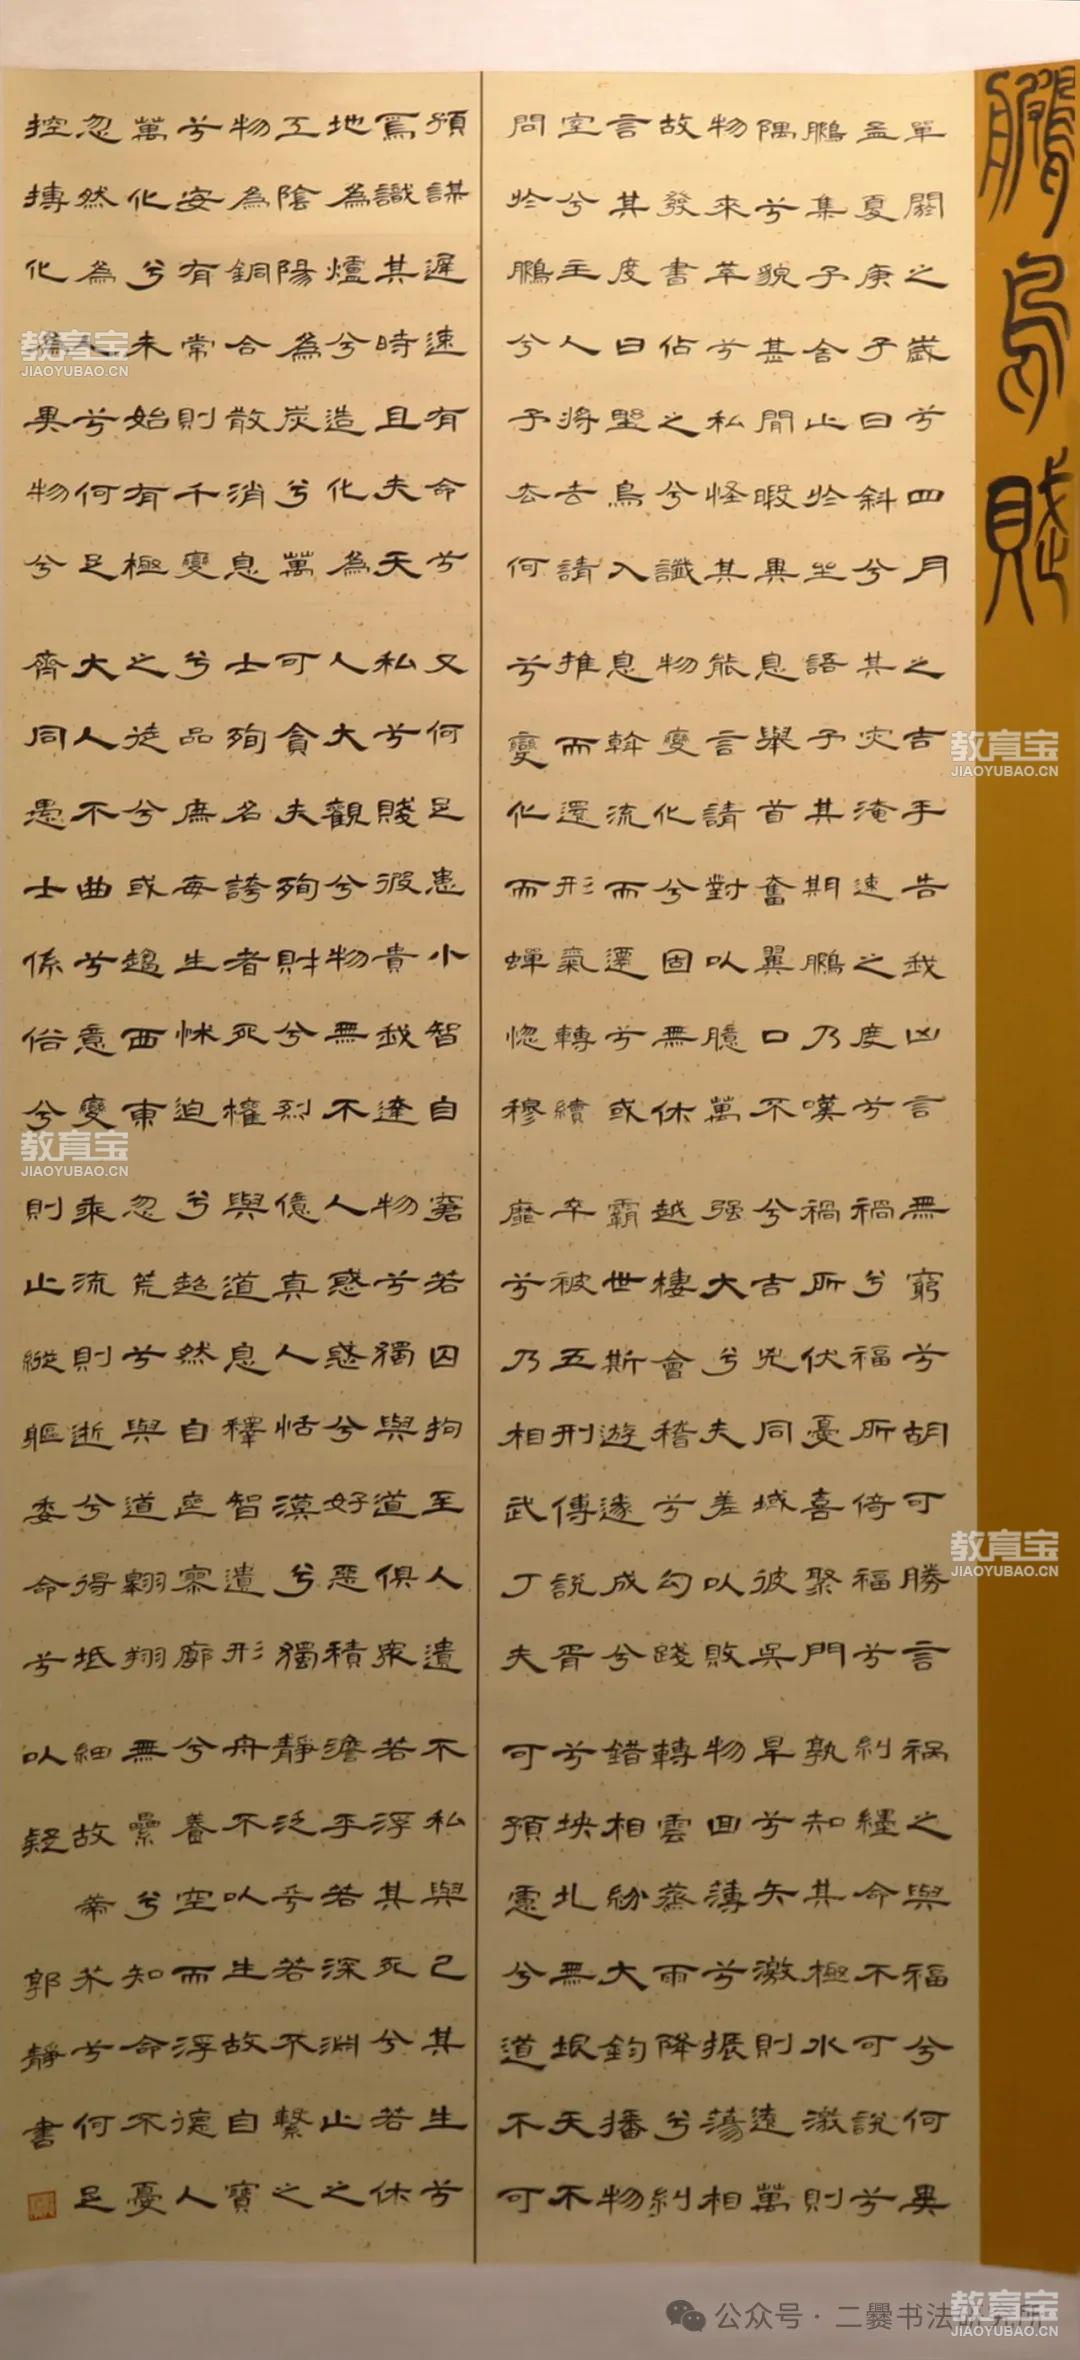 鵩鳥賦
單閼之歲兮四月
孟夏庚子日斜兮
鵬集子舍止於坐
隅兮貌甚閒暇異
物來萃兮私怪其
故發書佔之兮讖
言其度曰野鳥入
室兮主人將去請
問於鵬兮予去何
之吉乎告我凶言
其灾淹速之度兮
語予其期鵬乃嘆
息舉首奮翼口不
能言請對以臆萬
物變化兮固無休
息斡流而遷兮或
推而還形氣轉續
兮變化而蟬惚穆
無窮兮胡可勝言
禍兮福所倚福兮
禍所伏憂喜聚門
兮吉凶同域彼吳
强大兮夫差以敗
越棲會稽兮勾踐
霸世斯遊遂成兮
卒被五刑傅說胥
靡兮乃相武丁夫
禍之與福兮何異
糾纆命不可說兮
孰知其極水激則
旱兮矢激則遠萬
物回薄兮振蕩相
轉雲蒸雨降兮糾
錯相紛大鈞播物
兮坱圠無垠天不
可預慮兮道不可
預謀遲速有命兮
焉識其時且夫天
地為爐兮造化為
工陰陽為炭兮萬
物為銅合散消息
兮安有常則千變
萬化兮未始有極
忽然為人兮何足
控摶化為異物兮
又何足患小智自
私兮賤彼貴我達
人大觀兮物無不
可貪夫殉財兮烈
士殉名誇者死權
兮品庶每生怵迫
之徒兮或趨西東
大人不曲兮意變
齊同愚士係俗兮
窘若囚拘至人遺
物兮獨與道俱眾
人惑惑兮好惡積
億真人恬漠兮獨
與道息釋智遺形
兮超然自喪寥廓
忽荒兮與道翱翔
乘流則逝兮得坻
則止縱軀委命兮
不私與己其生兮
若浮其死兮若休
澹乎若深淵止之
靜泛乎若不繫之
舟不以生故自寶
兮養空而浮德人
無纍兮知命不憂
細故蒂芥兮何足
以疑
郭靜書
教育宝
JIAOYUBAO.CN
教育宝
JIAOYUBAO.CN
教育宝
JIAOYUBAO.CN
教育宝
JIAOYUBAO.CN
教育宝
JIAOYUBAO.CN
公众号·二爨书法